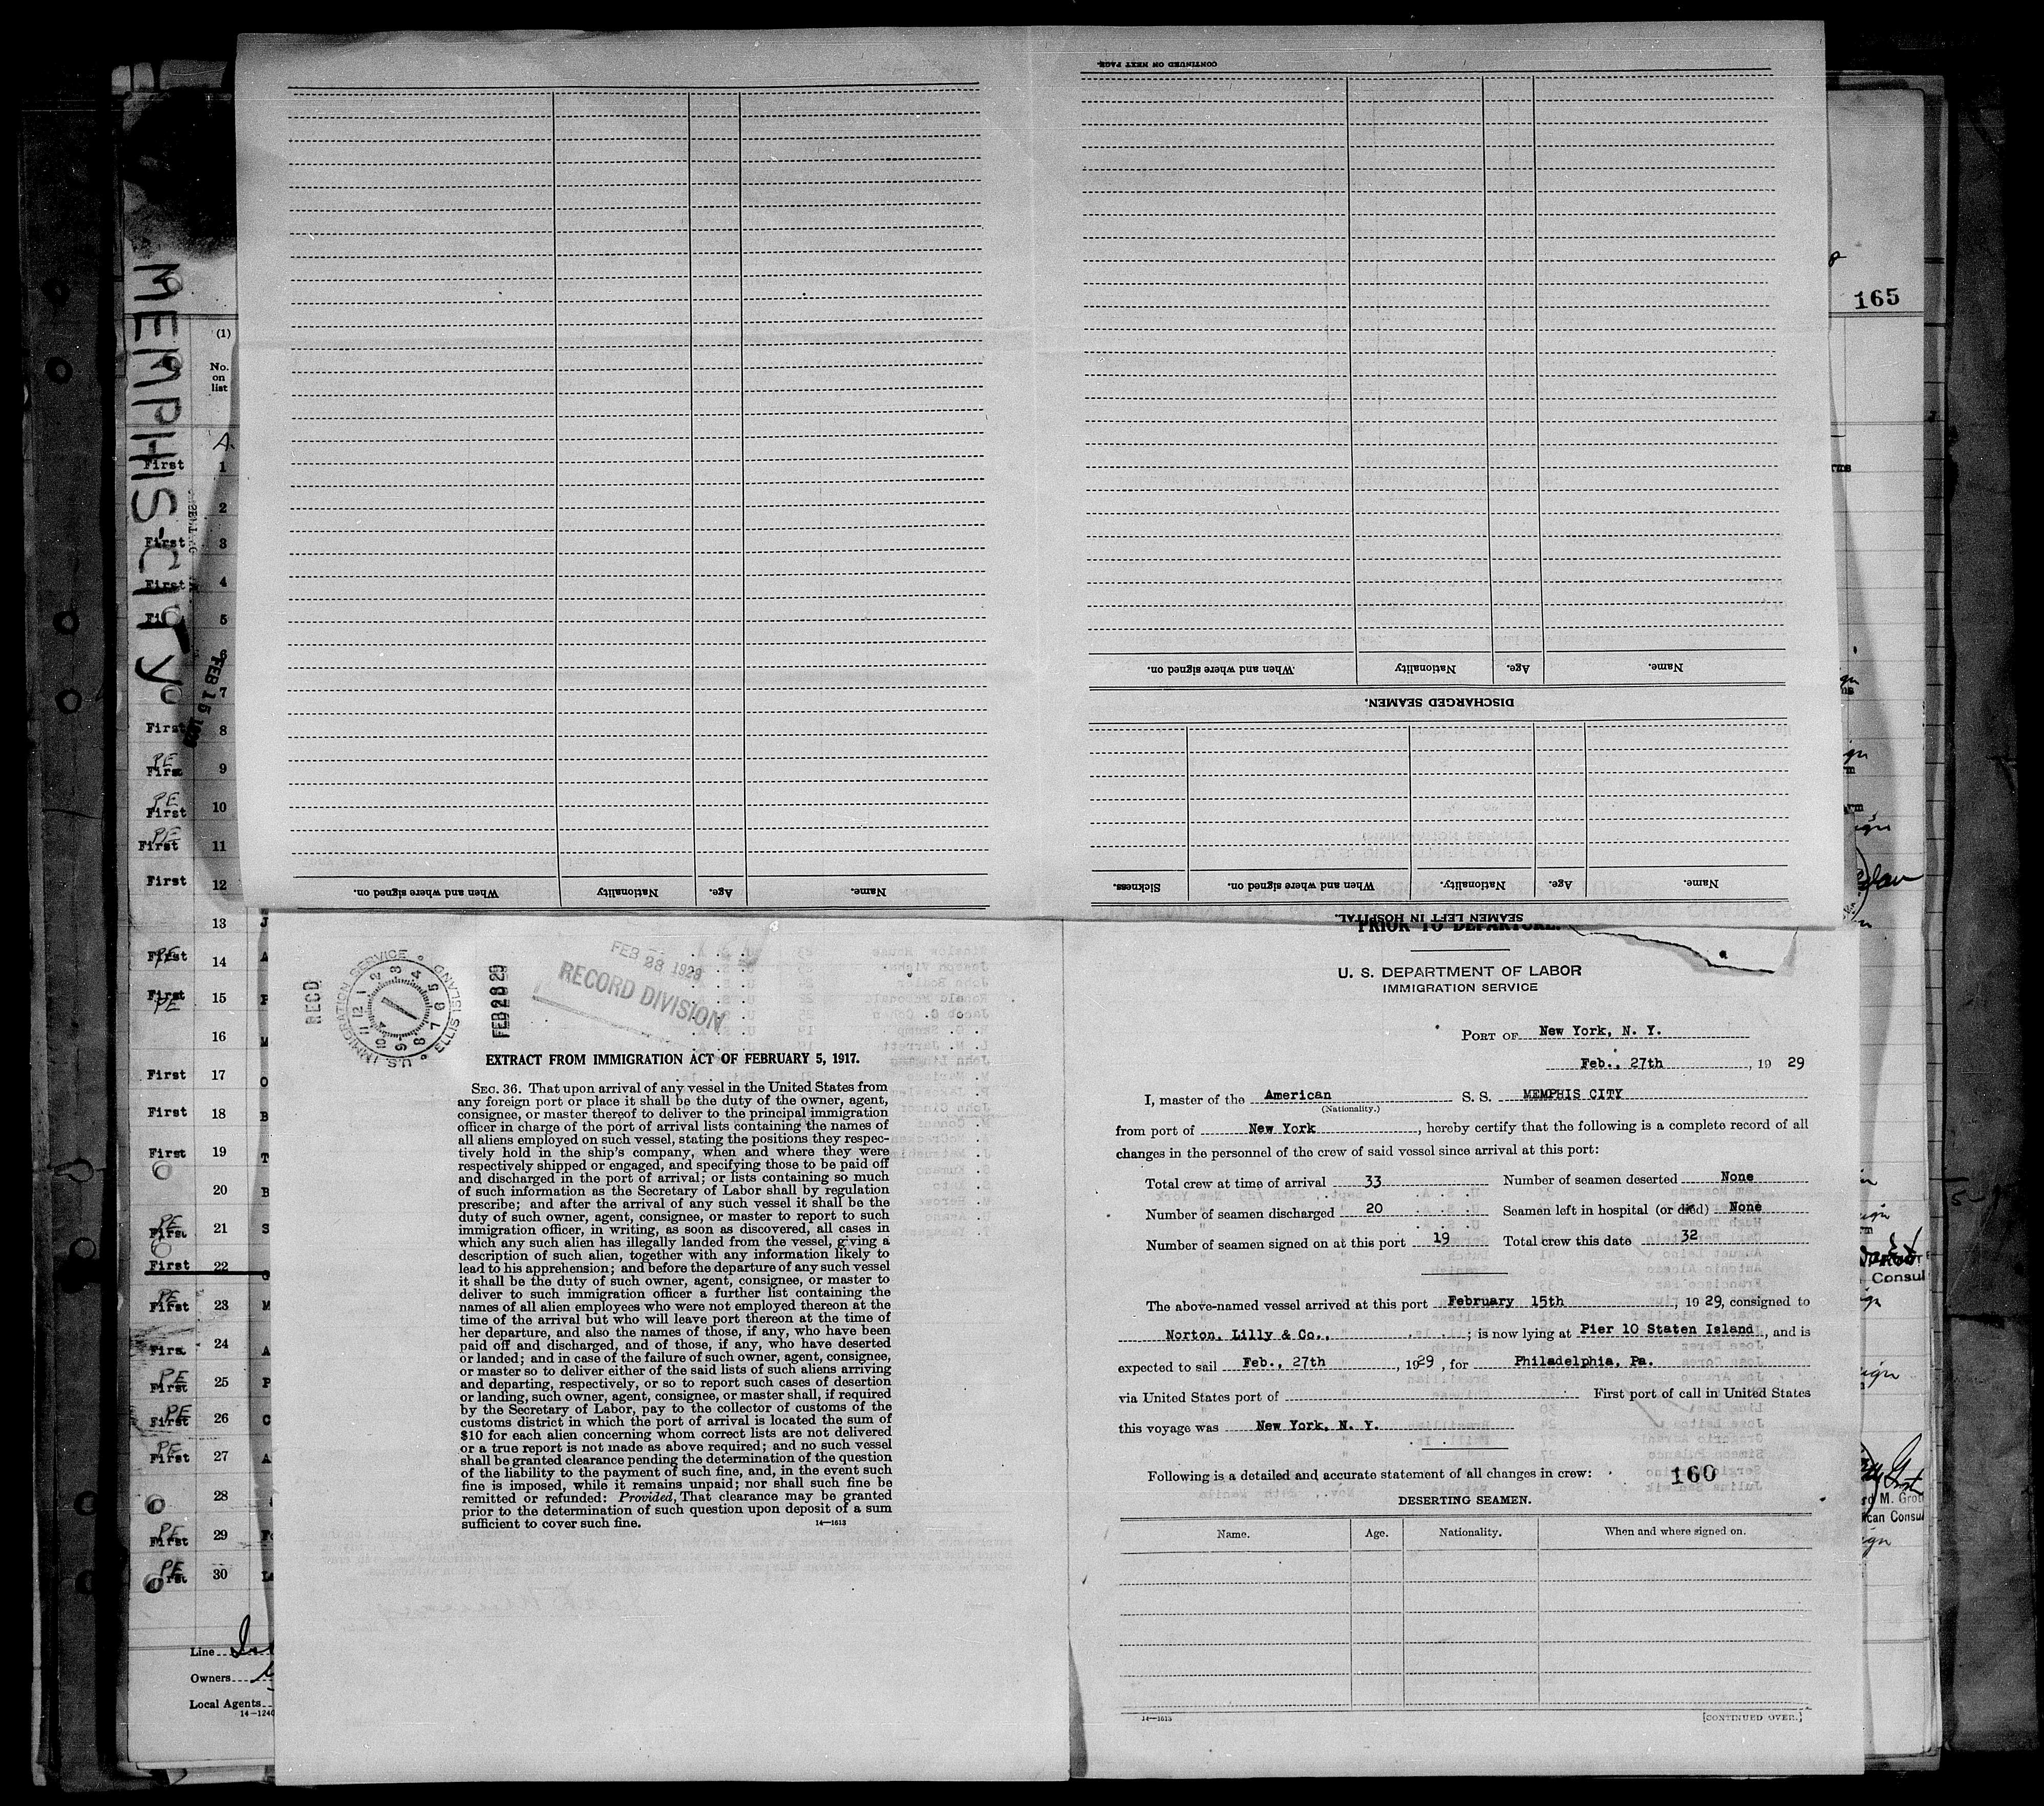 CONTINUED ON NEXT PAGE.
165
MEMPHIS-CITY
(1)
No.
on
list
A.
First 1
2
First 3
First 4
5
6
FEB 15 1929
7
First 8
PE
First 9
PE
First 10
PE
First 11
First 12
13
PE
First 14
First 15
PE
16
First 17
First 18
First 19
20
PE
First 21
First 22
PE
First 23
24
PE
First 25
PE
First 26
PE
First 27
28
PE
First 29
PE
First 30
Line
Owners
Local Agents
14-1240
Consul
rd M. Grot
ican Consul
When and where signed on. Nationality Age. Name.
DISCHARGED SEAMEN.
Sickness. When and where signed on. Nationality. Age. Name.
SEAMEN LEFT IN HOSPITAL.
When and where signed on. Nationality Age. Name.
RECD
U.S. IMMIGRATION SERVICE
ELLIS ISLAND
FEB 28 29
FEB 28 1929
RECORD DIVISION
EXTRACT FROM IMMIGRATION ACT OF FEBRUARY 5, 1917.
SEC. 36. That upon arrival of any vessel in the United States from
any foreign port or place it shall be the duty of the owner, agent,
consignee, or master thereof to deliver to the principal immigration
officer in charge of the port of arrival lists containing the names of
all aliens employed on such vessel, stating the positions they respec-
tively hold in the ship's company, when and where they were
respectively shipped or engaged, and specifying those to be paid off
and discharged in the port of arrival; or lists containing so much
of such information as the Secretary of Labor shall by regulation
prescribe; and after the arrival of any such vessel it shall be the
duty of such owner, agent, consignee, or master to report to such
immigration officer, in writing, as soon as discovered, all cases in
which any such alien has illegally landed from the vessel, giving a
description of such alien, together with any information likely to
lead to his apprehension; and before the departure of any such vessel
it shall be the duty of such owner, agent, consignee, or master to
deliver to such immigration officer a further list containing the
names of all alien employees who were not employed thereon at the
time of the arrival but who will leave port thereon at the time of
her departure, and also the names of those, if any, who have been
paid off and discharged, and of those, if any, who have deserted
or landed; and in case of the failure of such owner, agent, consignee,
or master so to deliver either of the said lists of such aliens arriving
and departing, respectively, or so to report such cases of desertion
or landing, such owner, agent, consignee, or master shall, if required
by the Secretary of Labor, pay to the collector of customs of the
customs district in which the port of arrival is located the sum of
$10 for each alien concerning whom correct lists are not delivered
or a true report is not made as above required; and no such vessel
shall be granted clearance pending the determination of the question
of the liability to the payment of such fine, and, in the event such
fine is imposed, while it remains unpaid; nor shall such fine be
remitted or refunded: Provided, That clearance may be granted
prior to the determination of such question upon deposit of a sum
sufficient to cover such fine.
14—1613
PRIOR TO DEPARTURE.
U. S. DEPARTMENT OF LABOR
IMMIGRATION SERVICE
PORT OF New York, N. Y.
Feb., 27th, 19 29
I, master of the American S. S. MEMPHIS CITY
(Nationality.)
from port of New York, hereby certify that the following is a complete record of all
changes in the personnel of the crew of said vessel since arrival at this port:
Total crew at time of arrival 33 Number of seamen deserted None
Number of seamen discharged 20 Seamen left in hospital (or died) None
Number of seamen signed on at this port 19 Total crew this date 32
The above-named vessel arrived at this port February 15th, 19 29, consigned to
Norton, Lilly & Co., ; is now lying at Pier 10 Staten Island, and is
expected to sail Feb., 27th, 1929, for Philadelphia, Pa.
via United States port of First port of call in United States
this voyage was New York, N. Y.
Following is a detailed and accurate statement of all changes in crew: 160
DESERTING SEAMEN.
Name. Age. Nationality. When and where signed on.
14—1613 [CONTINUED OVER.]